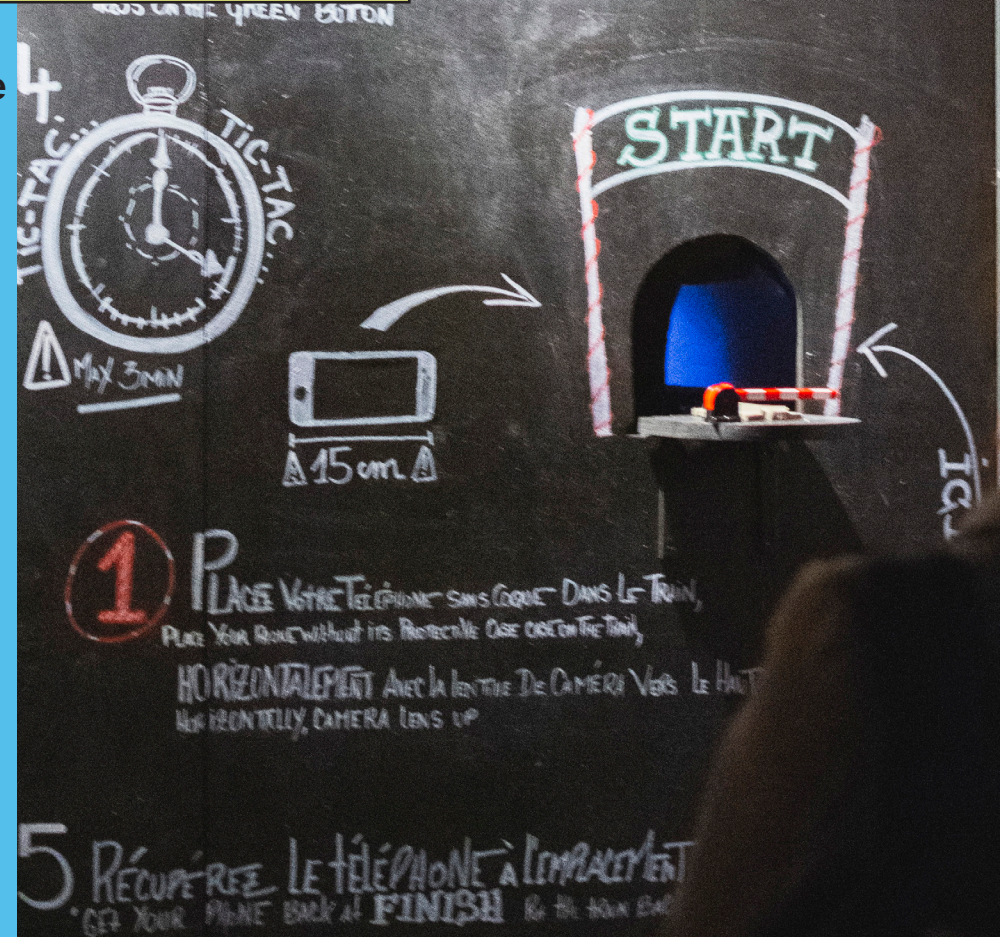 ON THE GREEN BUTON
4
TIC-TAC...
TIC-TAC...
MAX 3MIN
START
15 cm
1
PLACEZ VOTRE TÉLÉPHONE SANS COQUE DANS LE TRAIN,
PLACE YOUR PHONE WITHOUT ITS PROTECTIVE CASE ON THE TRAIN,
HORIZONTALEMENT AVEC LA LENTILLE DE CAMÉRA VERS LE HAUT
HORIZONTELLY, CAMERA LENS UP
5 RÉCUPÉREZ LE TÉLÉPHONE À L'EMPLACEMENT
GET YOUR PHONE BACK AT FINISH